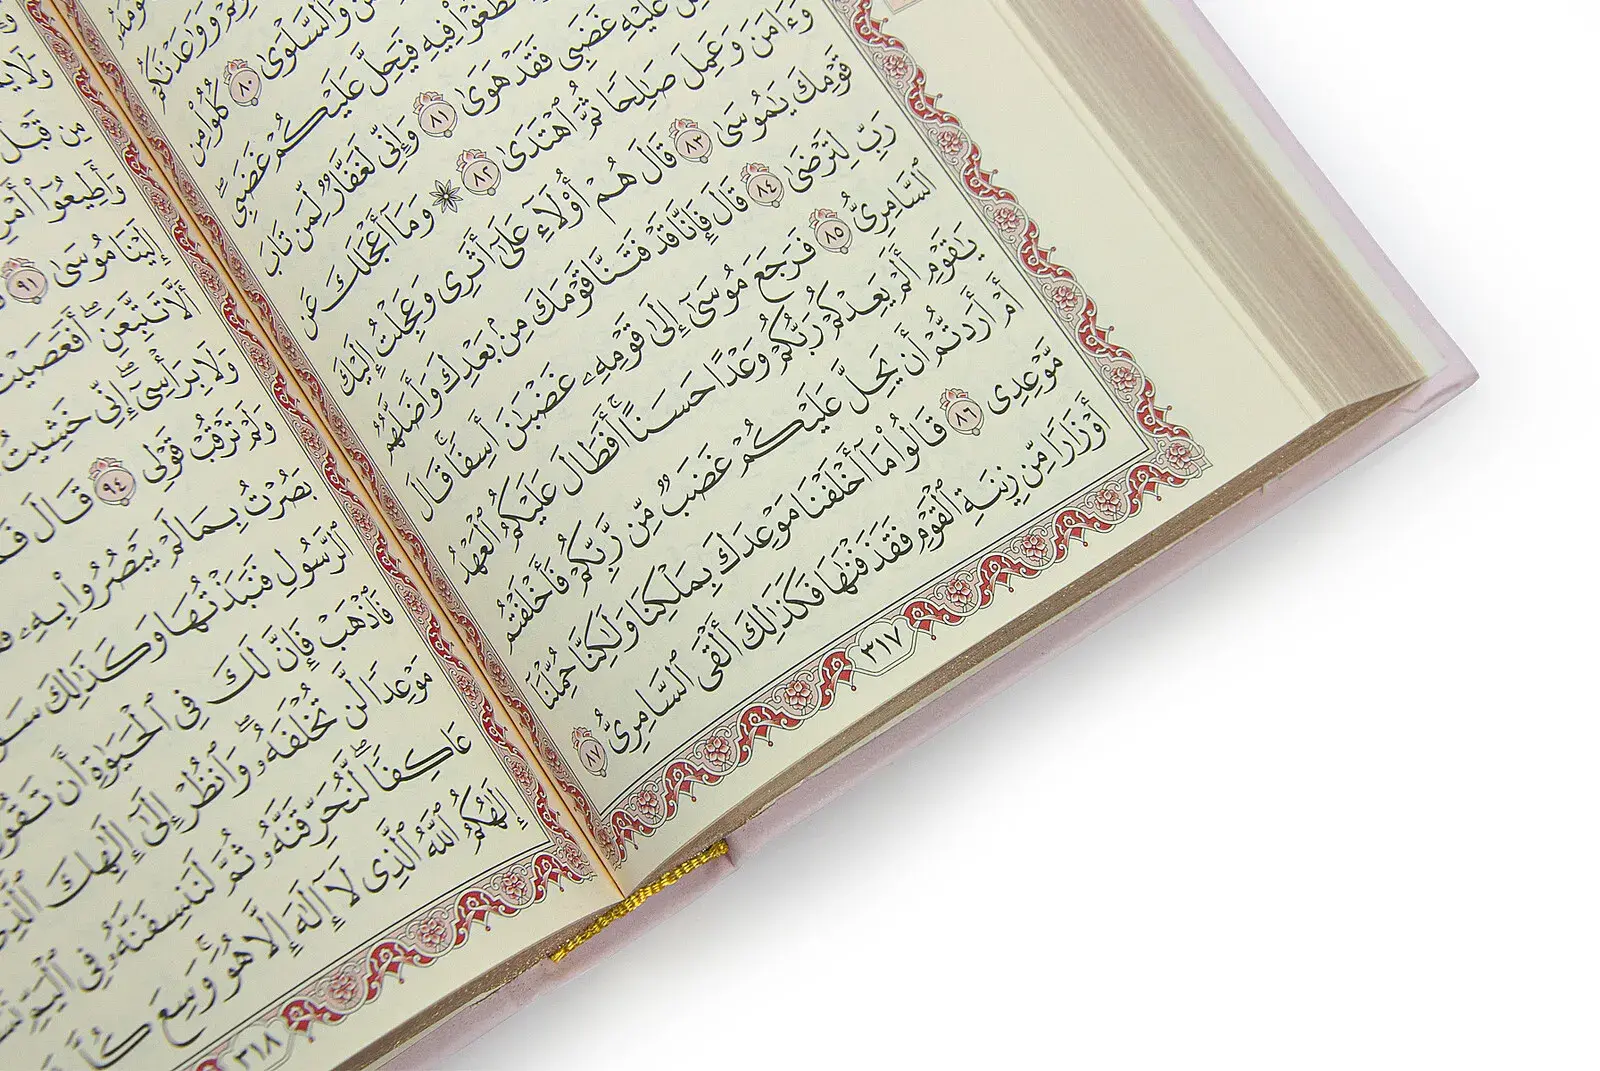 وَوَٰعَدْنَٰكُمْ
وَٱلسَّلْوَىٰ ٨٠ كُلُوا۟ مِن
تَطْغَوْا۟ فِيهِ فَيَحِلَّ عَلَيْكُمْ غَضَبِى ۖ
عَلَيْهِ غَضَبِى فَقَدْ هَوَىٰ ٨١ وَإِنِّى لَغَفَّارٌ لِّمَن تَابَ
وَءَامَنَ وَعَمِلَ صَٰلِحًا ثُمَّ ٱهْتَدَىٰ ٨٢ ۞ وَمَآ أَعْجَلَكَ عَن
قَوْمِكَ يَٰمُوسَىٰ ٨٣ قَالَ هُمْ أُو۟لَآءِ عَلَىٰٓ أَثَرِى وَعَجِلْتُ إِلَيْكَ
رَبِّ لِتَرْضَىٰ ٨٤ قَالَ فَإِنَّا قَدْ فَتَنَّا قَوْمَكَ مِنۢ بَعْدِكَ وَأَضَلَّهُمُ
ٱلسَّامِرِىُّ ٨٥ فَرَجَعَ مُوسَىٰٓ إِلَىٰ قَوْمِهِۦ غَضْبَٰنَ أَسِفًا ۚ قَالَ
يَٰقَوْمِ أَلَمْ يَعِدْكُمْ رَبُّكُمْ وَعْدًا حَسَنًا ۚ أَفَطَالَ عَلَيْكُمُ ٱلْعَهْدُ
أَمْ أَرَدتُّمْ أَن يَحِلَّ عَلَيْكُمْ غَضَبٌ مِّن رَّبِّكُمْ فَأَخْلَفْتُم
مَّوْعِدِى ٨٦ قَالُوا۟ مَآ أَخْلَفْنَا مَوْعِدَكَ بِمَلْكِنَا وَلَٰكِنَّا حُمِّلْنَآ
أَوْزَارًا مِّن زِينَةِ ٱلْقَوْمِ فَقَذَفْنَٰهَا فَكَذَٰلِكَ أَلْقَى ٱلسَّامِرِىُّ ٨٧
٣١٧
مِن قَبْلُ
وَأَطِيعُوٓا۟ أَمْرِى
إِلَيْنَا مُوسَىٰ ٩١
أَلَّا تَتَّبِعَنِ ۖ أَفَعَصَيْتَ
وَلَا بِرَأْسِىٓ ۖ إِنِّى خَشِيتُ
وَلَمْ تَرْقُبْ قَوْلِى ٩٤ قَالَ
بَصُرْتُ بِمَا لَمْ يَبْصُرُوا۟ بِهِۦ
ٱلرَّسُولِ فَنَبَذْتُهَا وَكَذَٰلِكَ
فَٱذْهَبْ فَإِنَّ لَكَ فِى ٱلْحَيَوٰةِ أَن تَقُولَ
مَوْعِدًا لَّن تُخْلَفَهُۥ ۖ وَٱنظُرْ إِلَىٰٓ إِلَٰهِكَ ٱلَّذِى
عَاكِفًا ۖ لَّنُحَرِّقَنَّهُۥ ثُمَّ لَنَنسِفَنَّهُۥ فِى ٱلْيَمِّ
إِلَٰهُكُمُ ٱللَّهُ ٱلَّذِى لَآ إِلَٰهَ إِلَّا هُوَ ۚ وَسِعَ كُلَّ
٣١٨